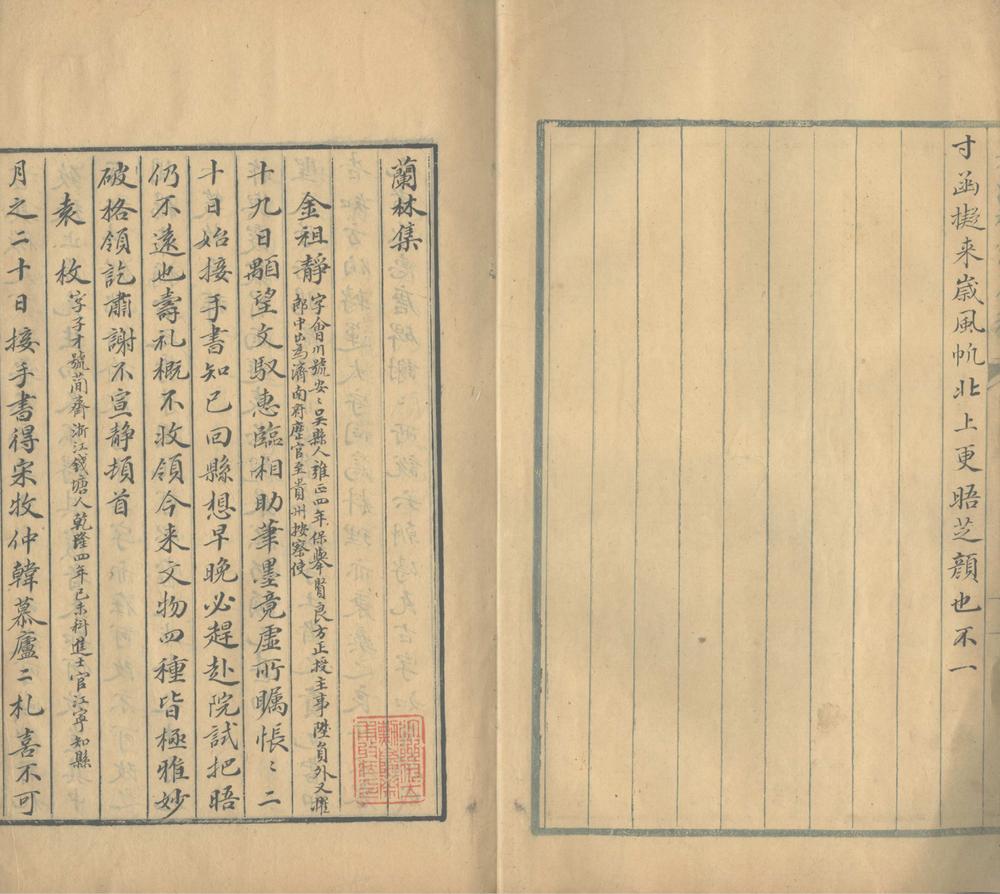 寸函擬来歲風帆北上更晤芝顔也不一
蘭林集
金祖靜
字會川號安〻吴縣人雍正四年保舉賢良方正授主事陞員外又陞
郎中出為濟南府歷官至貴州按察使
十九日顒望文馭惠臨相助筆墨竟虛所矚悵〻二
十日始接手書知已回縣想早晚必趕赴院試把晤
仍不遠也壽礼概不收領今来文物四種皆極雅妙
破格領訖肅謝不宣静頓首
袁枚
字子才號簡齋浙江錢塘人乾隆四年己未科進士官江寧知縣
月之二十日接手書得宋牧仲韓慕廬二札喜不可